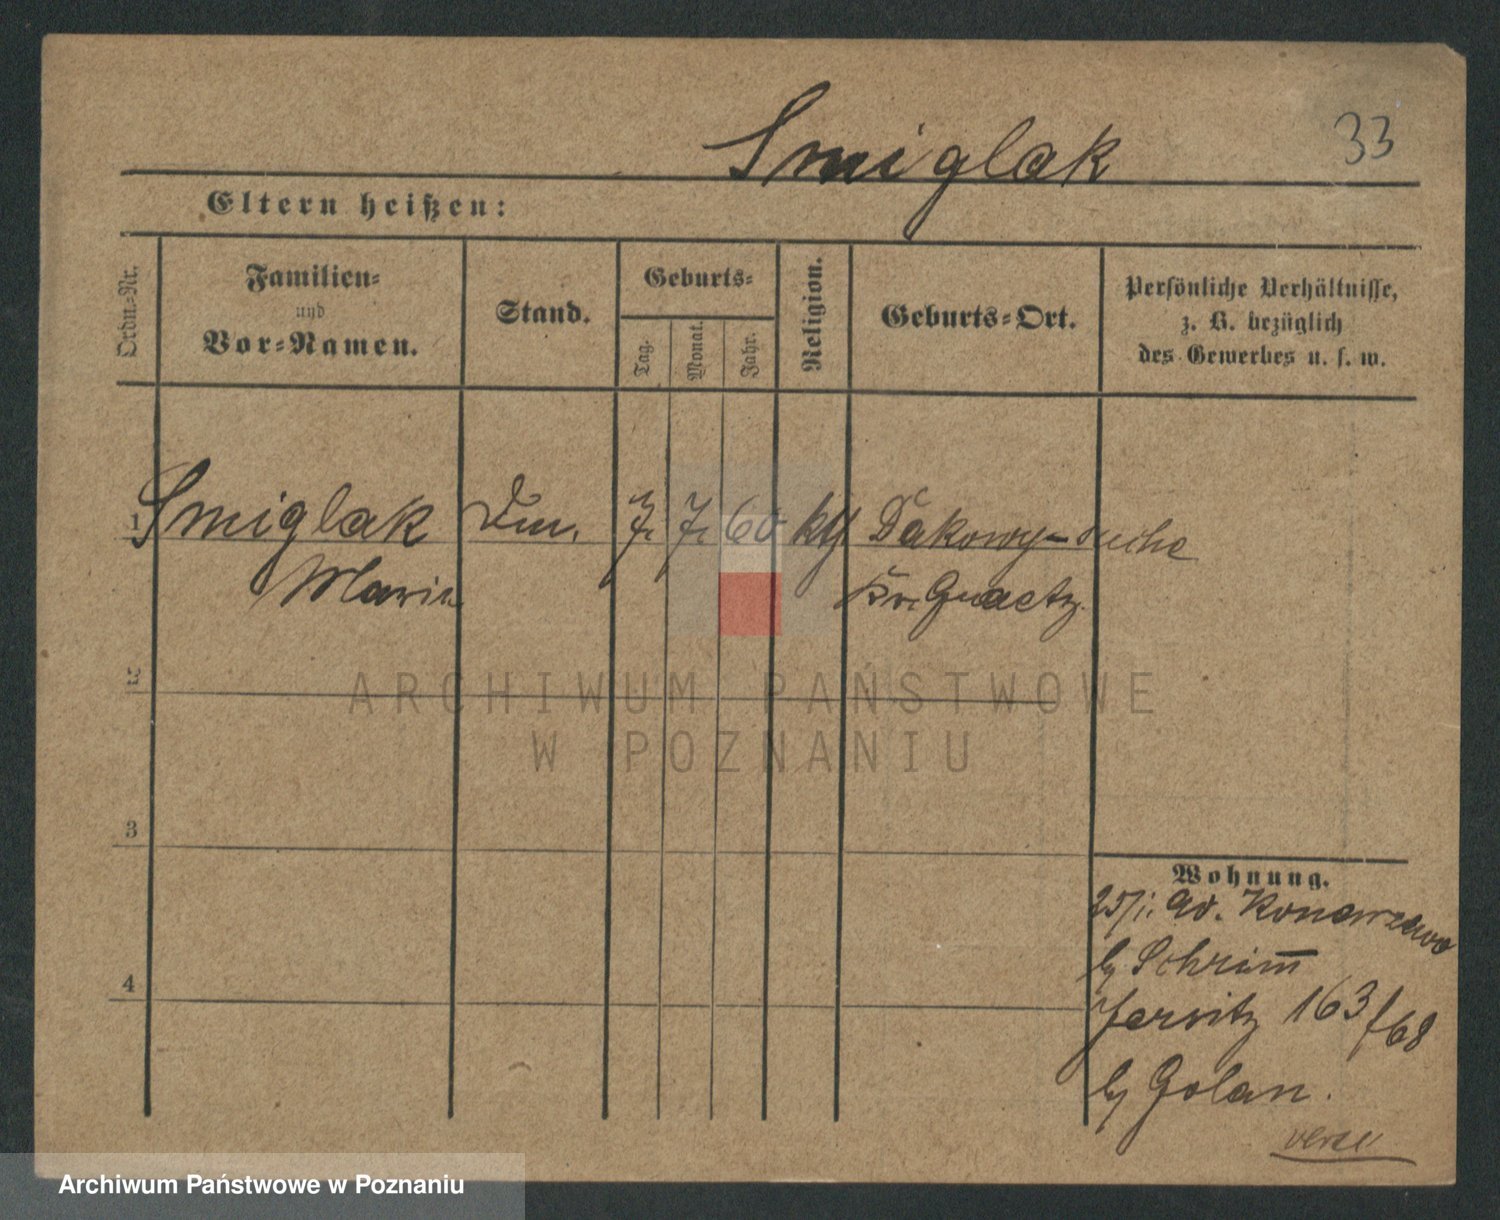 Smiglak
33
Eltern heißen:
Ordn.=Nr.
Familien=
und
Vor=Namen.
Stand.
Geburts=
Tag.
Monat.
Jahr.
Religion.
Geburts=Ort.
Persönliche Verhältnisse,
z. B. bezüglich
des Gewerbes u. s. w.
1 Smiglak 7. 7. 60 kth Dakowy-suche
Marie Kr. Graetz.
2
ARCHIWUM PAŃSTWOWE
W POZNANIU
3
Wohnung.
Konarzewo
Schrimm
4
Jersitz 163/68
Golan.
verso
Archiwum Państwowe w Poznaniu